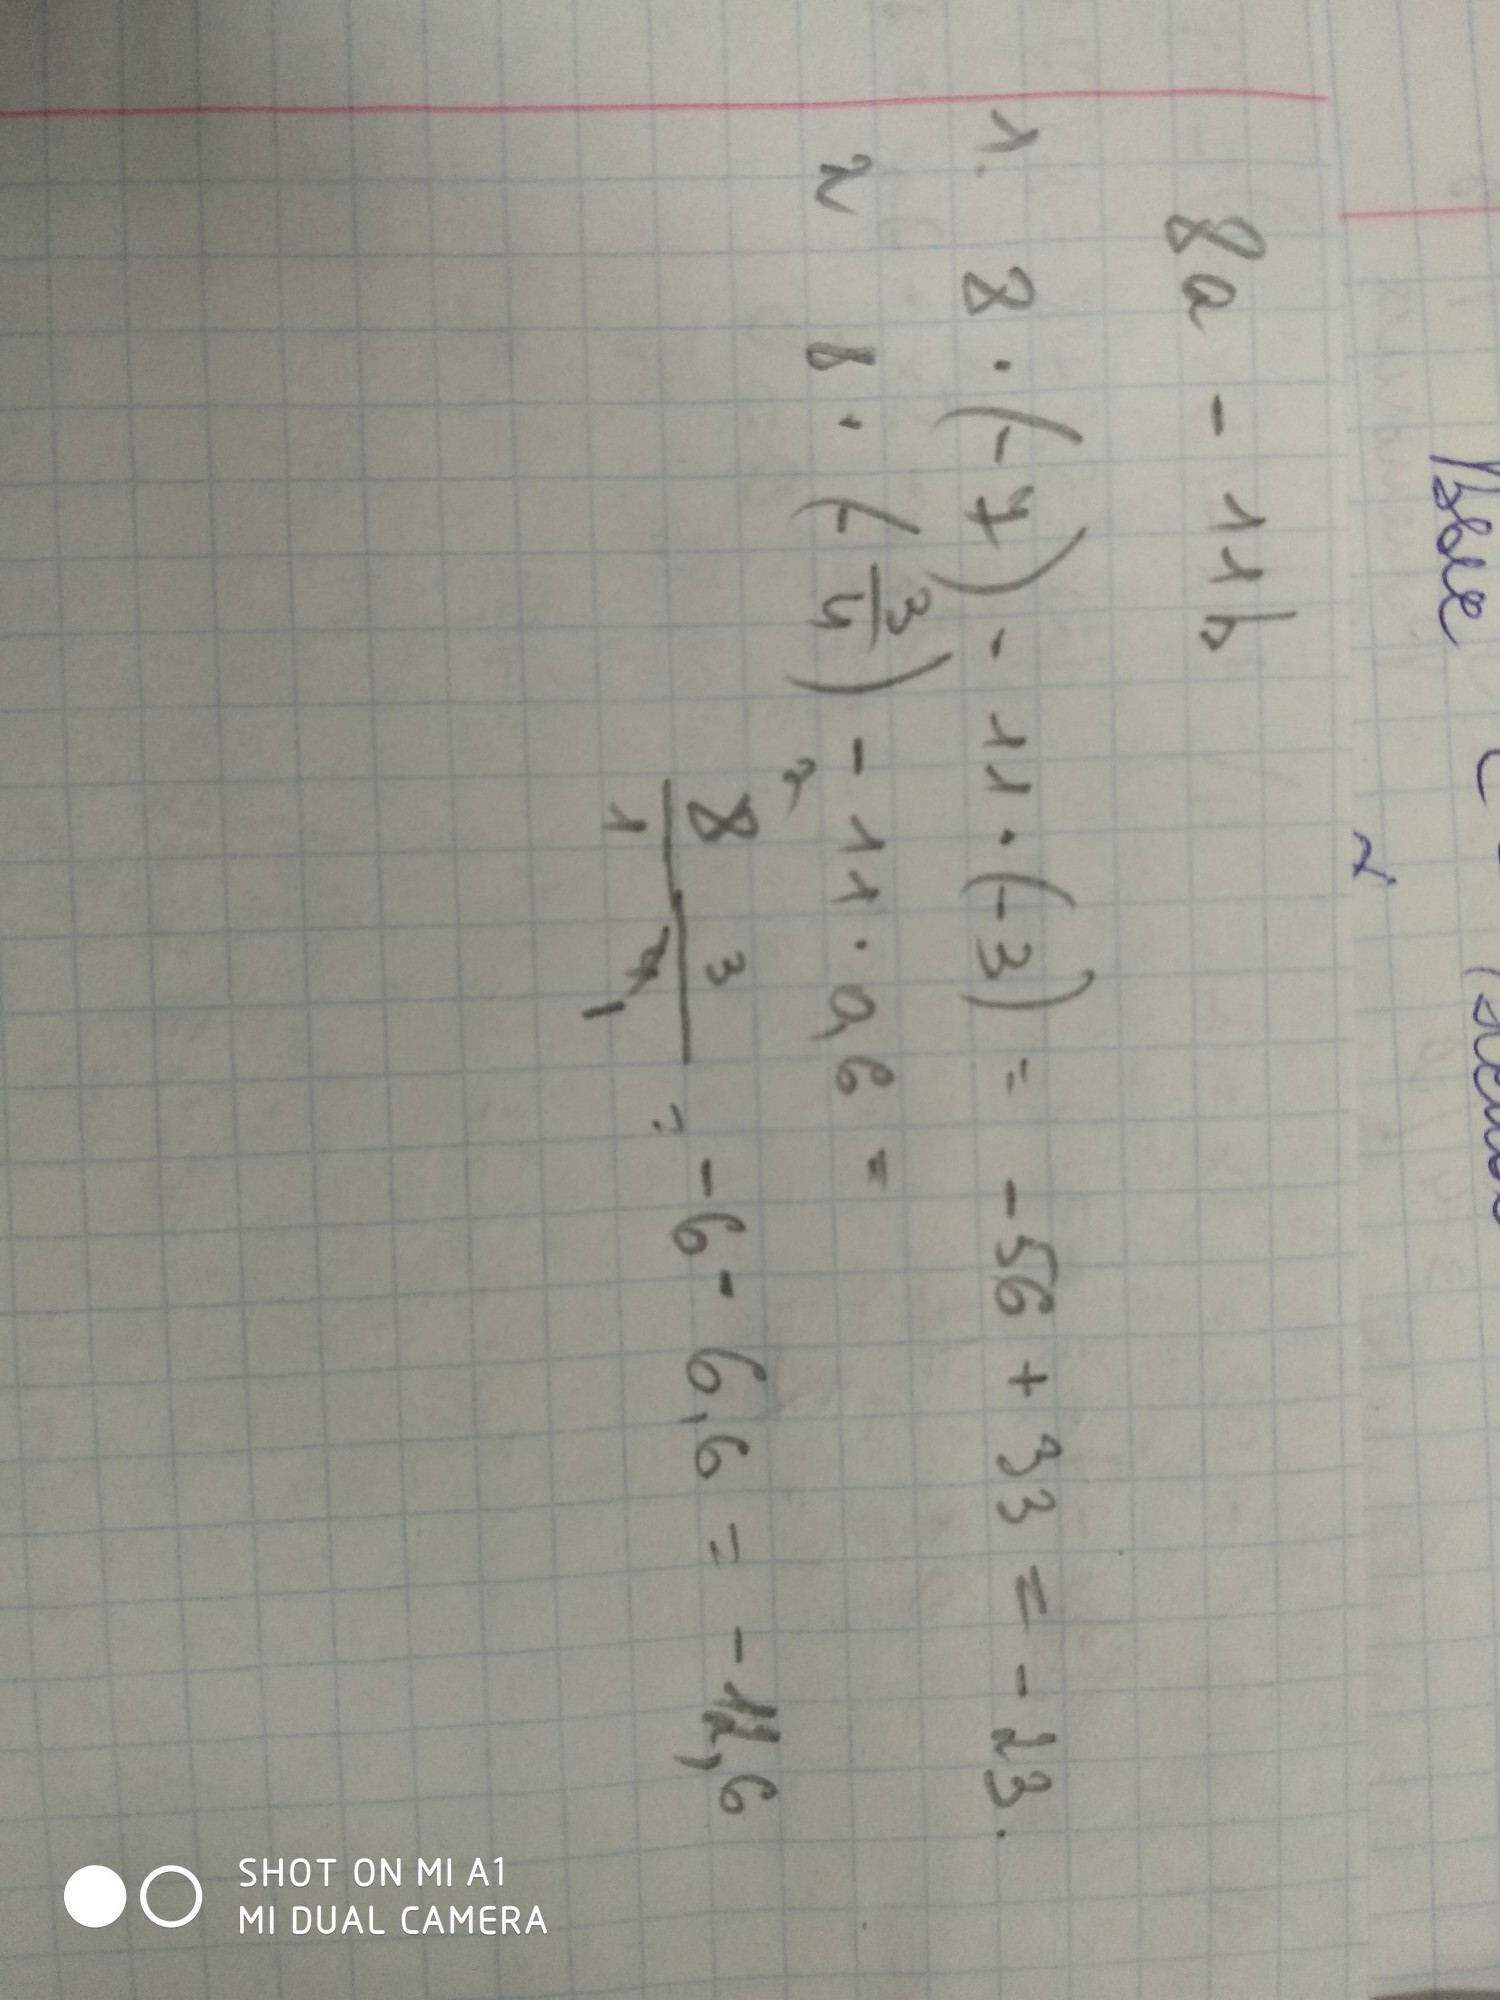 8a - 11b
1. 8 · (-7) - 11 · (-3) = -56 + 33 = -23.
2 8 · (-3/4) - 11 · 0,6 =
2 8/1 3/4 1 = -6 - 6,6 = -12,6
2.
SHOT ON MI A1
MI DUAL CAMERA